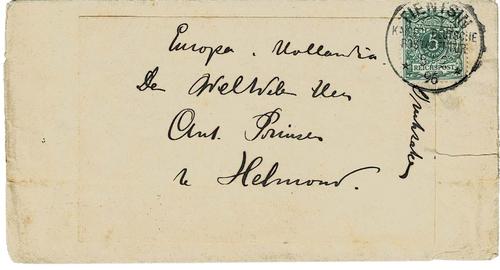 TIENTSIN
KAISERL. DEUTSCHE
POSTAGENTUR
96
5
REICHSPOST
Europa. Hollandia
Den WelEdelen Heer
Ant. Prinsen
te Helmond.
Drucksachen